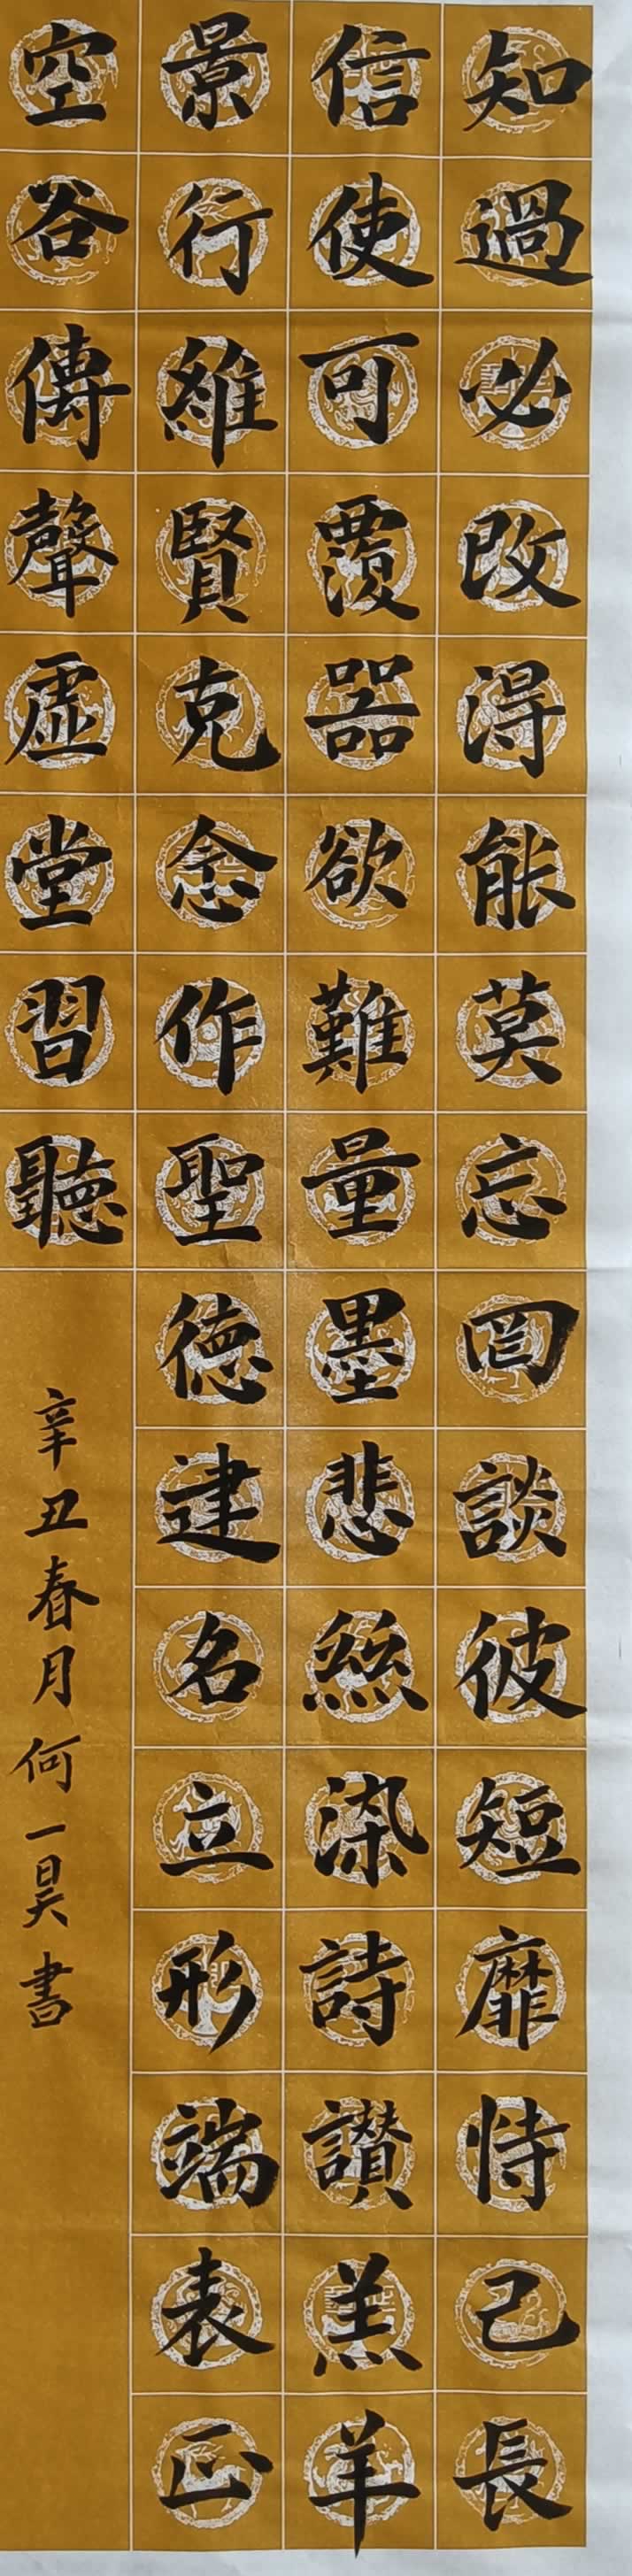 知過必改得能莫忘罔談彼短靡恃己長
信使可覆器欲難量墨悲絲染詩讃羔羊
景行維賢克念作聖德建名立形端表正
空谷傳聲虛堂習聽
辛丑春月何一昊書